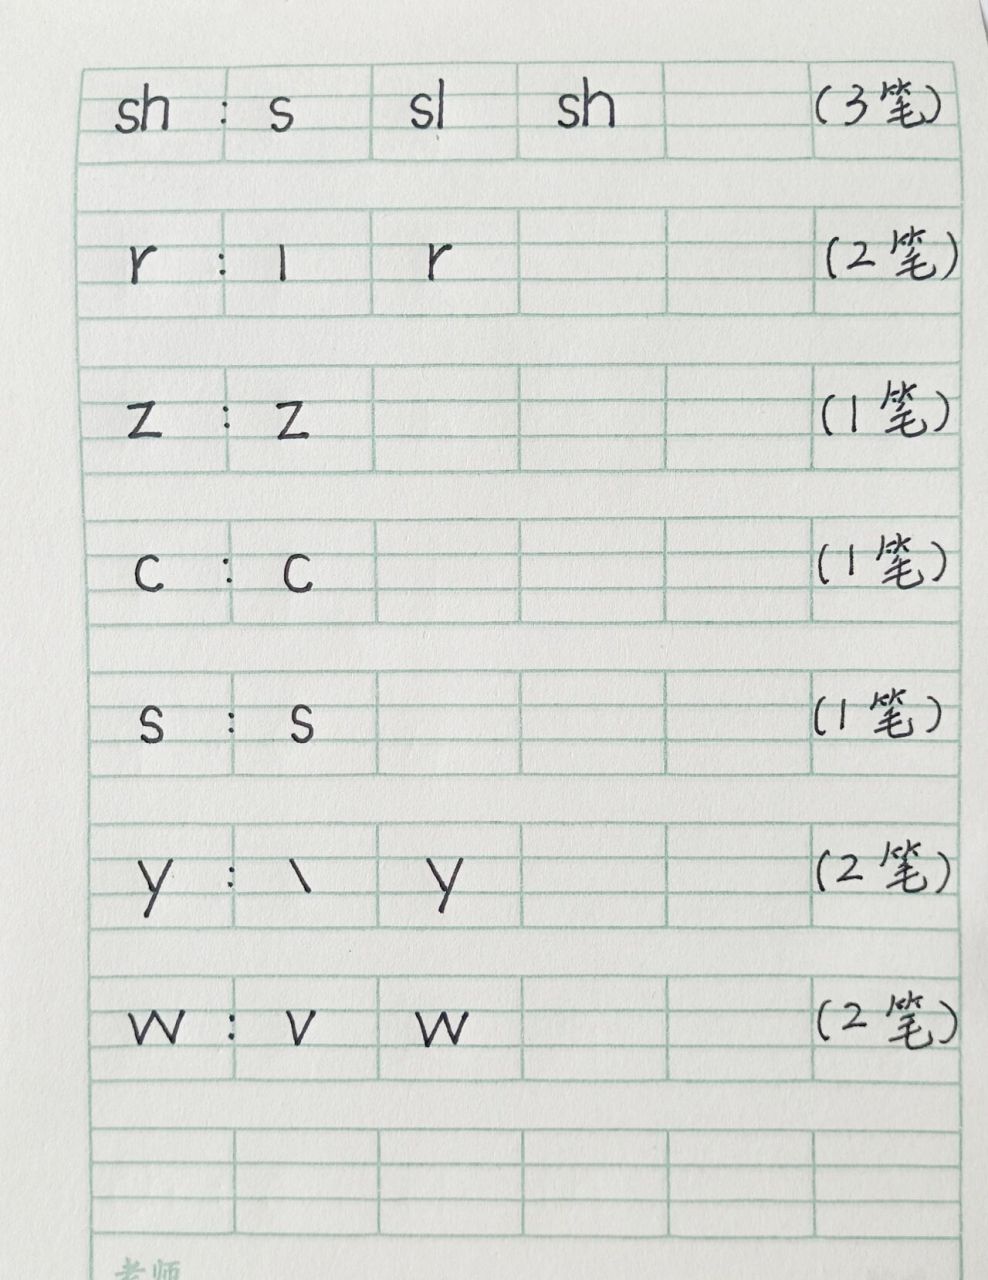 sh : s sl sh (3笔)
r : ı r (2笔)
z : z (1笔)
c : c (1笔)
s : s (1笔)
y : \ y (2笔)
w : v w (2笔)
老师